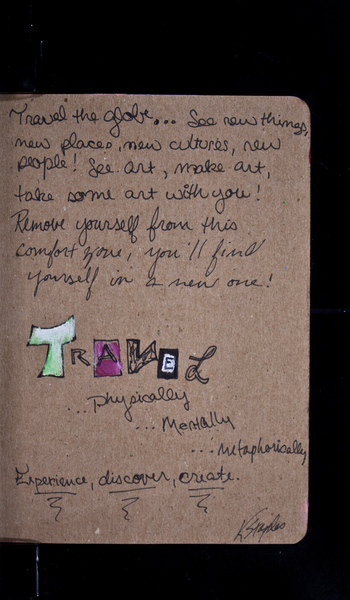 Travel the globe... See new things,
new places, new cultures, new
people! See art, make art,
take some art with you!
Remove yourself from this
comfort zone, you'll find
yourself in a new one!
TRAVEL
...physically
...Mentally
...metaphorically
Experience, discover, create.
KStaples